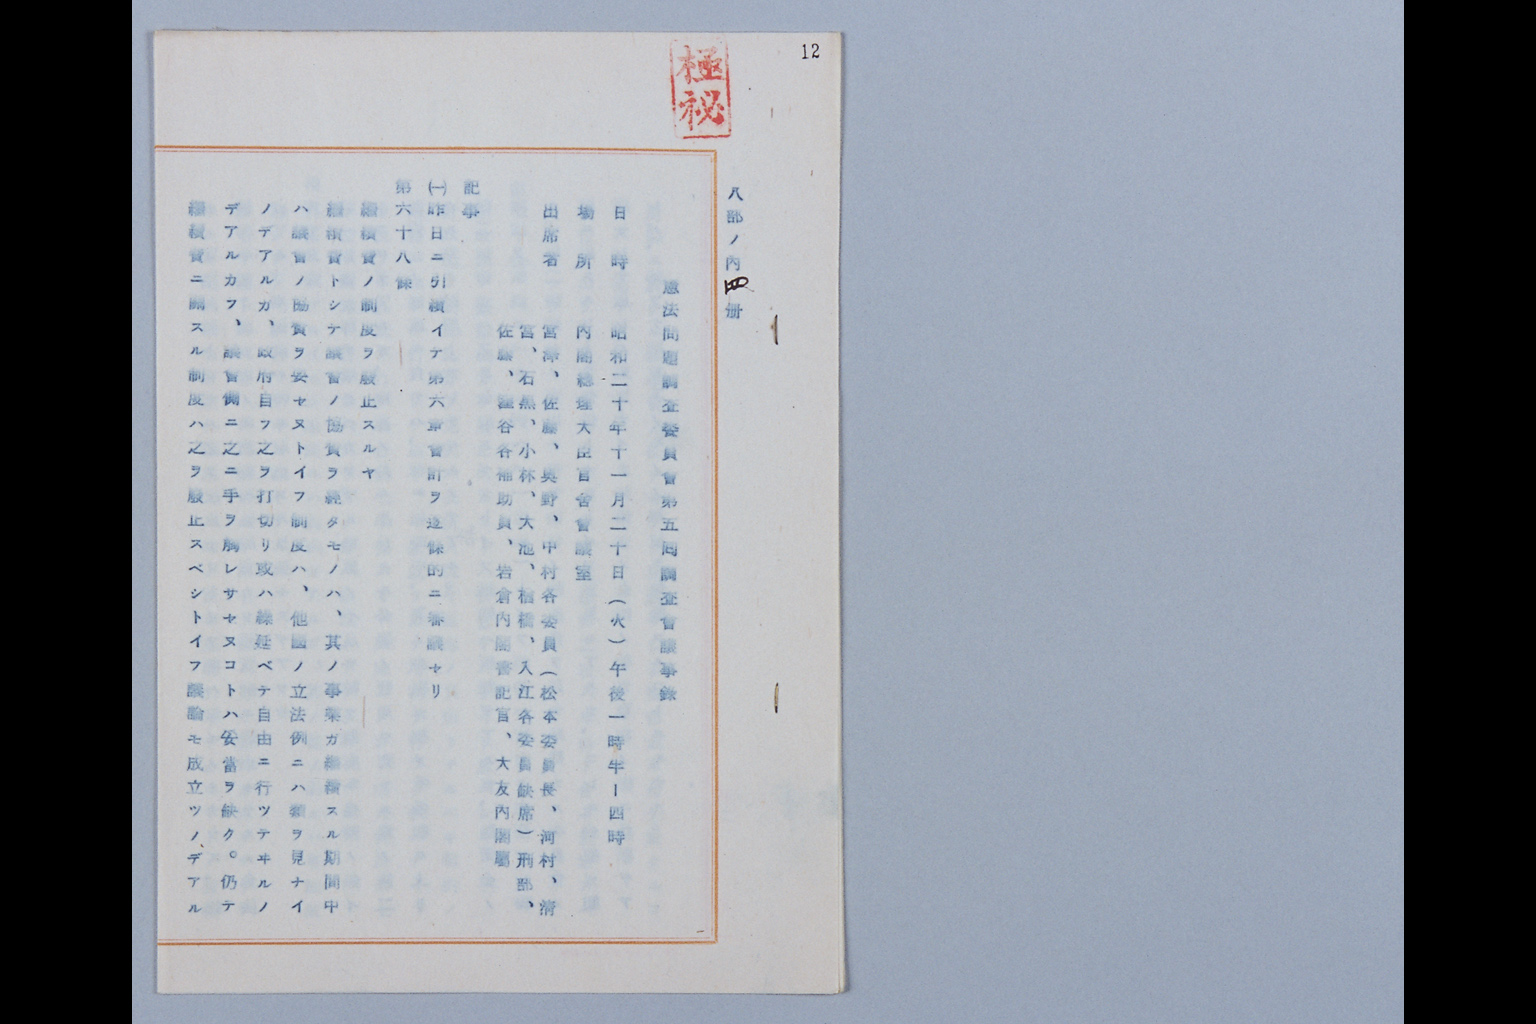 12
極秘
八部ノ内四册
憲法問題調査委員會第五囘調査會議事錄
日時 昭和二十年十一月二十日(火)午後一時半ー四時
場所 內閣總理大臣官舍會議室
出席者 宮澤、佐藤、奧野、中村各委員(松本委員長、河村、淸
宮、石黑、小林、大池、楢橋、入江各委員缺席)刑部、
佐藤、窪谷各補助員、岩倉內閣書記官、大友內閣屬
記事
㈠昨日ニ引續イテ第六章會計ヲ逐條的ニ審議セリ
第六十八條
繼續費ノ制度ヲ廢止スルヤ
繼續費トシテ議會ノ協贊ヲ經タモノハ、其ノ事業ガ繼續スル期間中
ハ議會ノ協贊ヲ要セヌトイフ制度ハ、他國ノ立法例ニハ類ヲ見ナイ
ノデアルガ、政府自ラ之ヲ打切リ或ハ繰延ベテ自由ニ行ツテヰルノ
デアルカラ、議會側ニ之ニ手ヲ觸レサセヌコトハ妥當ヲ缺ク。仍テ
繼續費ニ關スル制度ハ之ヲ廢止スベシトイフ議論モ成立ツノデアル